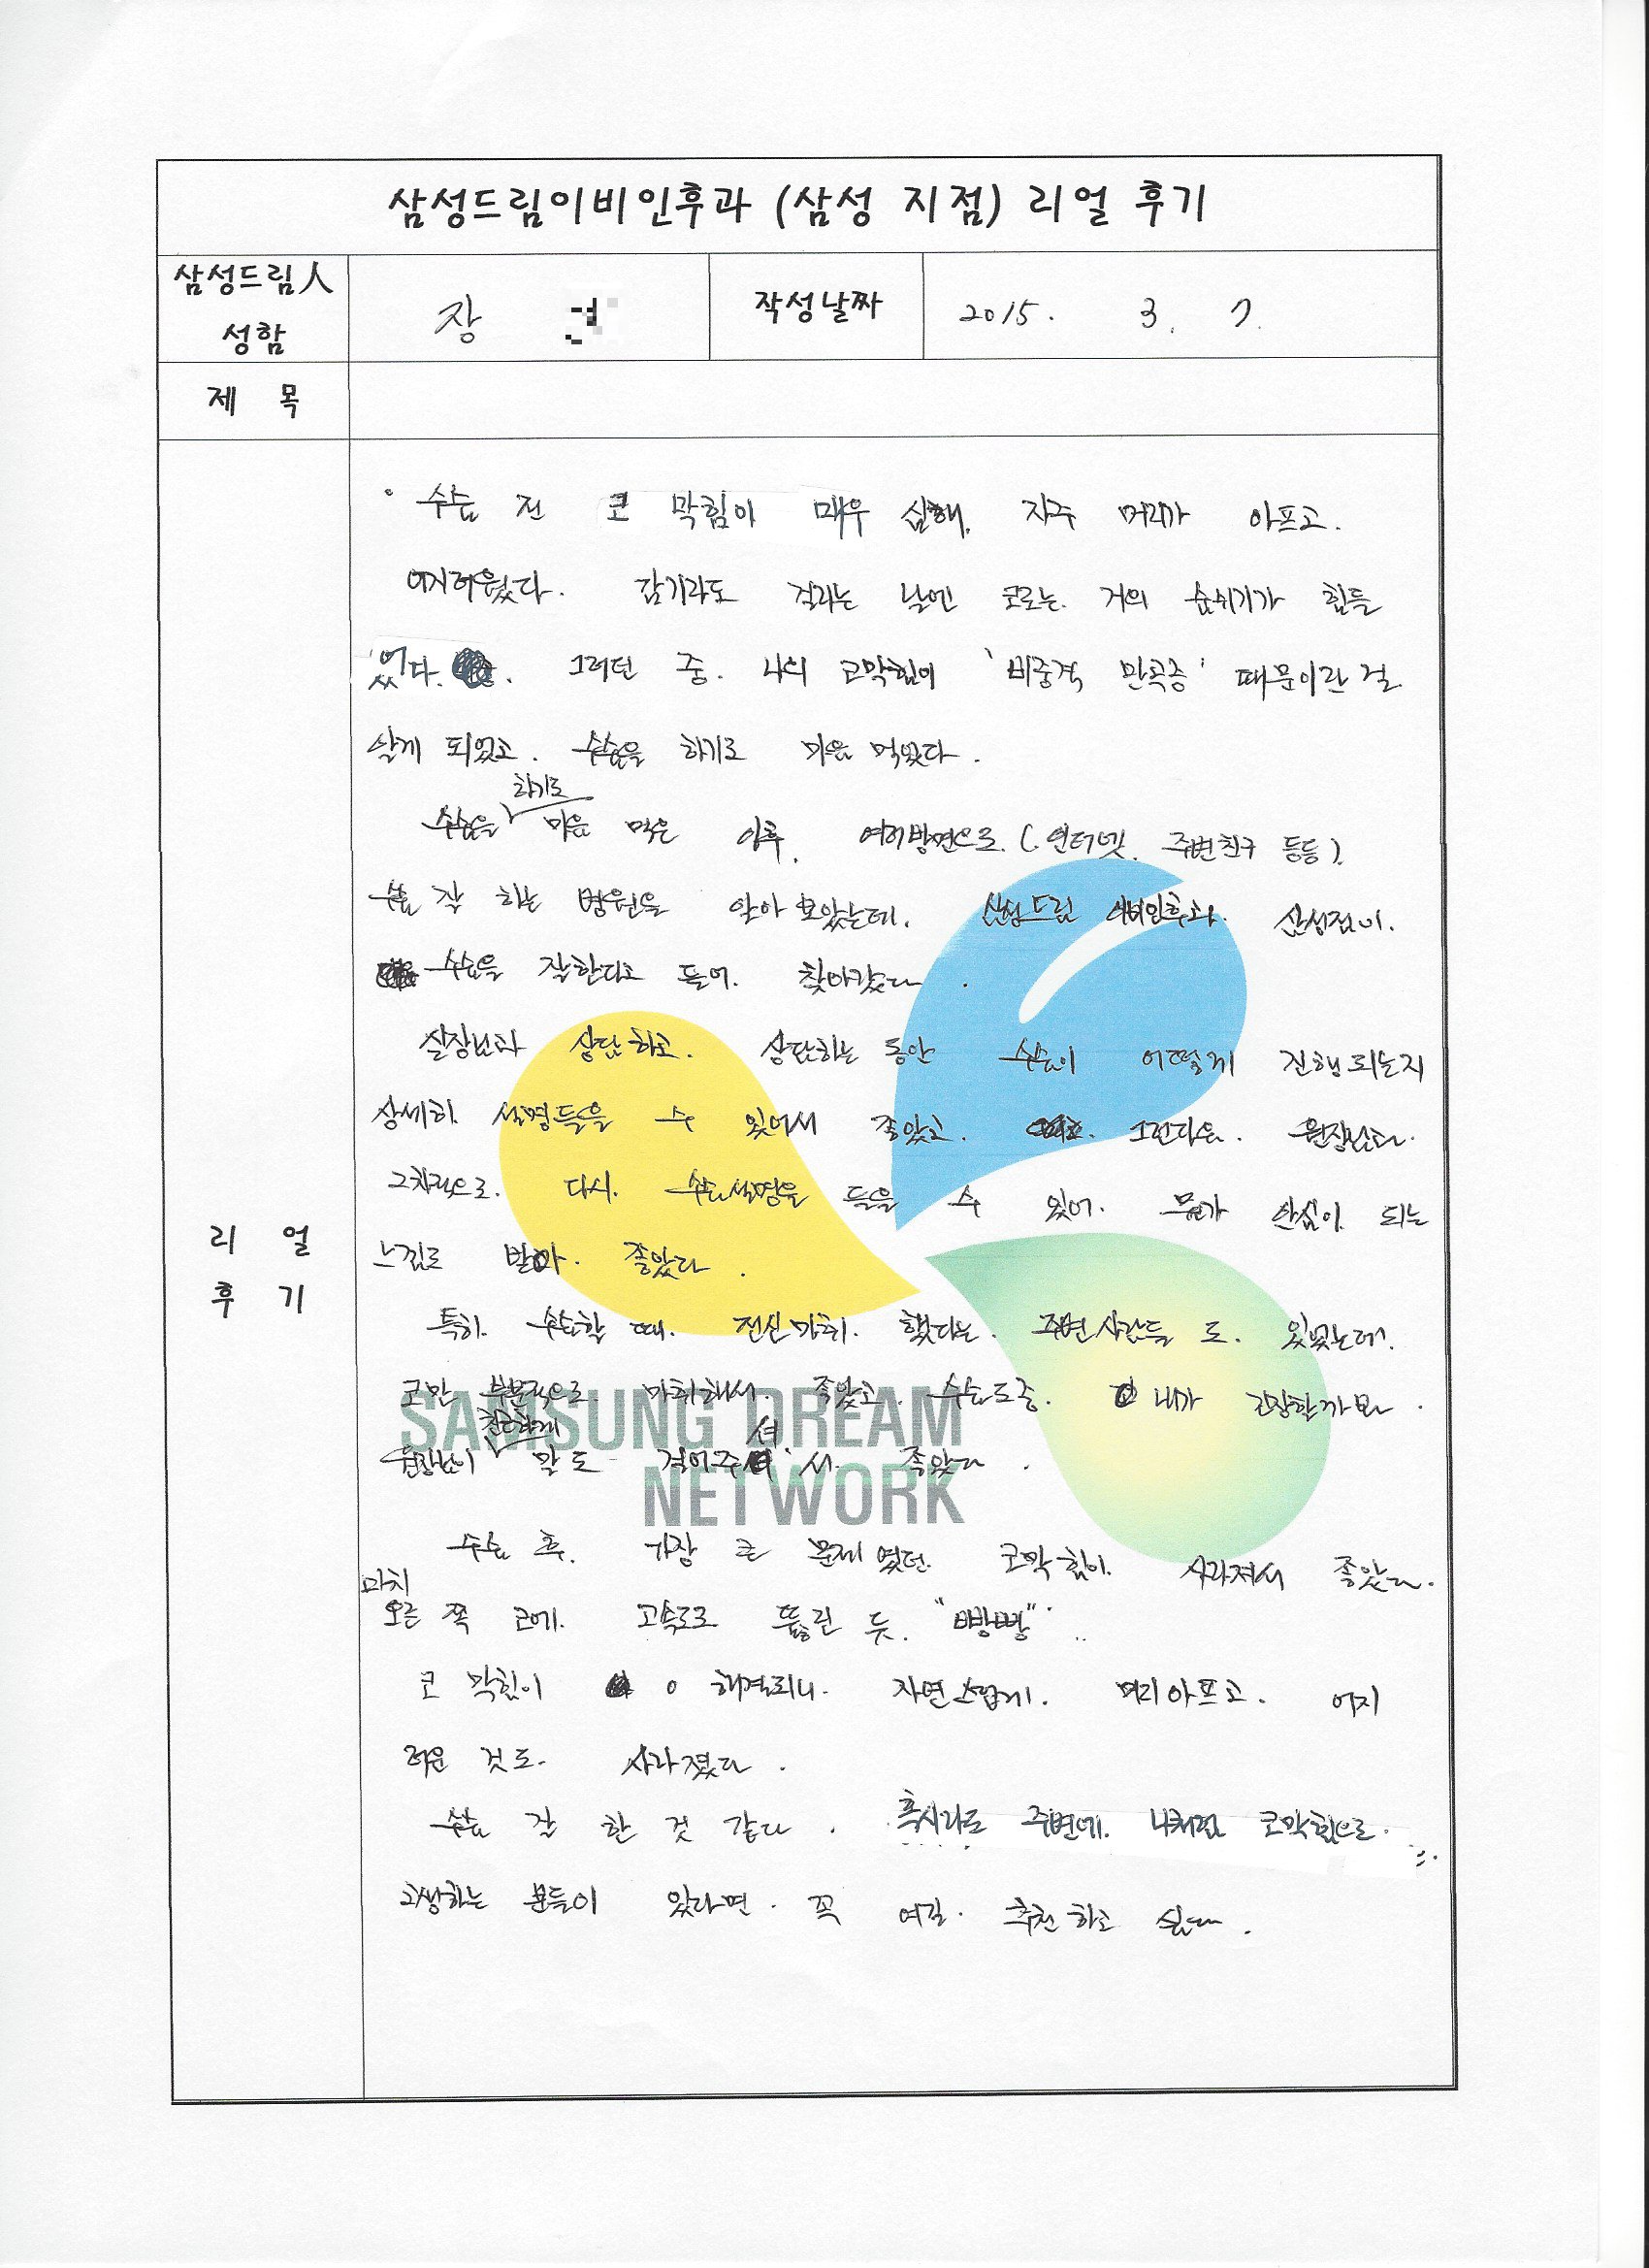 삼성드림이비인후과 (삼성 지점) 리얼 후기
삼성드림人
성함
장
작성날짜
2015. 3. 7.
제 목
리 얼
후 기
수술 전 코 막힘이 매우 심해, 자주 머리가 아프고.
어지러웠다. 감기라도 걸리는 날엔 코로는 거의 숨쉬기가 힘들
었다. 그러던 중. 나의 코막힘이 '비중격 만곡증' 때문이란 걸
알게 되었고. 수술을 하기로 마음 먹었다.
하기로
수술을 마음 먹은 이후, 여러방면으로 (인터넷, 주변친구 등등)
수술 잘 하는 병원을 알아 보았는데. 삼성드림 이비인후과 삼성점이.
수술을 잘한다고 들어. 찾아갔다.
실장님과 상담하고. 상담하는 동안 수술이 어떻게 진행되는지
상세히 설명들을 수 있어서 좋았고. 그런다음. 원장님과.
구체적으로. 다시. 수술설명을 들을 수 있어. 뭔가 안심이 되는
느낌도 받아. 좋았다.
특히. 수술할 때. 전신마취. 했다는. 주변사람들 도. 있었는데.
코만 부분적으로 마취해서. 좋았고. 수술도중. 내가 긴장할까봐.
친근하게 셔
원장님이 말도 걸어주 서. 좋았다.
수술 후. 가장 큰 문제였던. 코막힘이. 사라져서 좋았다.
마치
오른 쪽 코에. 고속도로 뚫린 듯. "빵빵"..
코 막힘이 해결되니. 자연스럽게. 머리아프고. 어지
러운 것도. 사라졌다.
수술 잘 한 것 같다. 혹시라도 주변에. 나처럼 코막힘으로.
고생하는 분들이 있다면. 꼭 여길. 추천하고 싶다.
SAMSUNG DREAM
NETWORK